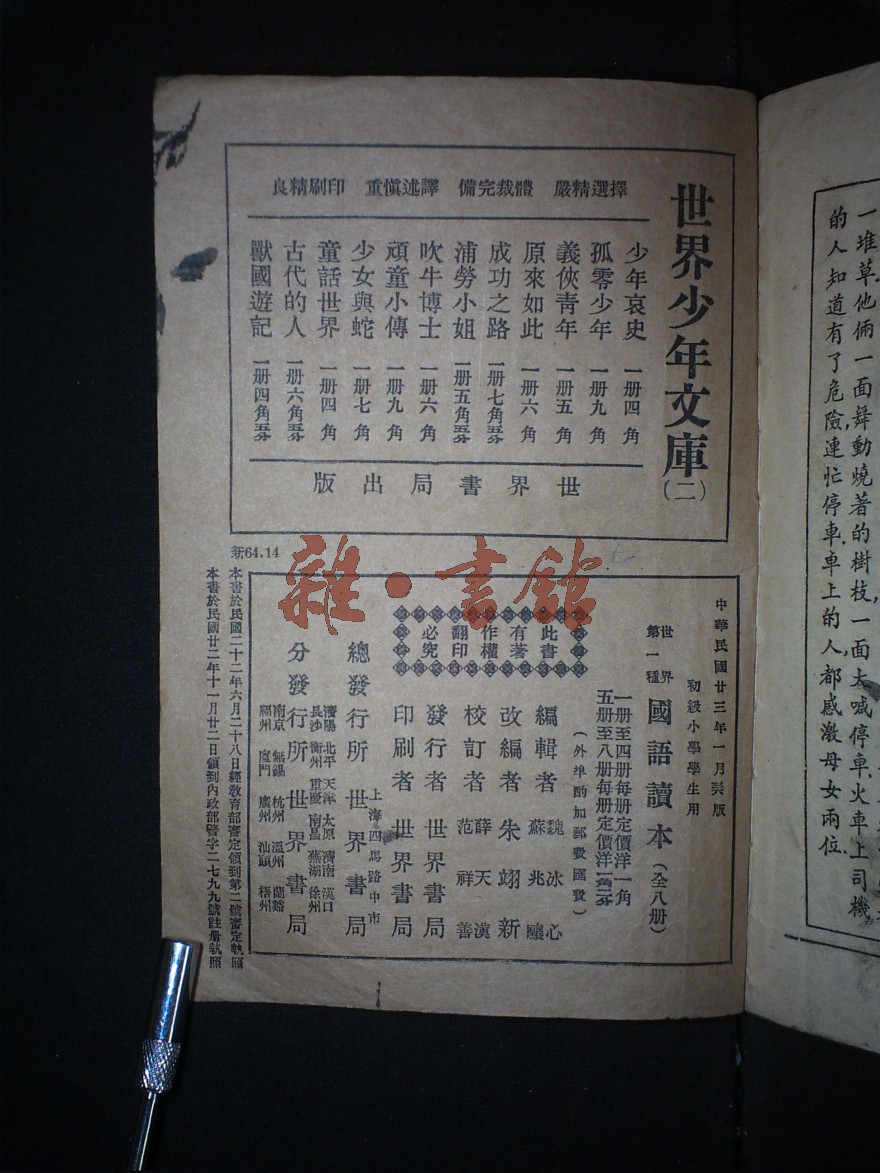 世界少年文庫(二)
擇選精嚴　體裁完備　譯述慎重　印刷精良
少年哀史　一册四角
孤零少年　一册九角
義俠青年　一册五角
原來如此　一册六角
成功之路　一册七角五分
浦勞小姐　一册五角五分
吹牛博士　一册六角
頑童小傳　一册九角
少女與蛇　一册七角
童話世界　一册四角
古代的人　一册六角五分
獸國遊記　一册四角五分
世界書局出版
新64.14
雜·書館
中華民國廿三年一月
版
初級小學學生用
世界第一種　國語讀本(全八册)
一册至四册每册定價洋一角
五册至八册每册定價洋一角二分
(外埠酌加郵費匯費)
此書有著作權翻印必究
編輯者　魏冰心　蘇兆驤
改編者　朱翊新
校訂者　薛天漢　范祥善
發行者　世界書局
印刷者　世界書局
上海四馬路中市
總發行所　世界書局
瀋陽　北平　天津　太原　濟南　漢口
長沙　衡州　重慶　南昌　蕪湖　徐州
分發行所　世界書局
南京　無錫　杭州　溫州　蘭谿
福州　廈門　廣州　汕頭　梧州
本書於民國二十二年六月二十八日經教育部審定領到第二號審定執照
本書於民國廿二年十一月廿二日領到內政部警字二七九九號註册執照
一堆草.他倆一面舞動燒著的樹枝,一面大喊停車.火車上司機
的人知道有了危險,連忙停車.車上的人,都感激母女兩位.